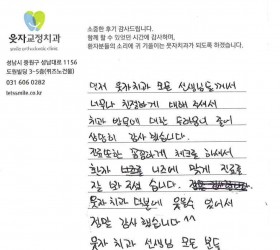 웃자교정치과
smile orthodontic clinic
성남시 중원구 성남대로 1156
도림빌딩 3~5층(퀴즈노건물)
031 606 0282
letsumile.co.kr
소중한 후기 감사드립니다.
함께 할 수 있었던 시간에 감사하며,
환자분들의 소리에 귀 기울이는 웃자치과가 되도록 하겠습니다.
먼저 웃자치과 모든 선생님들께서
너무나 친절하게 대해 주셔서
치과 방문에 대한 두려움이 줄어
상당히 감사했습니다.
진료또한 꼼꼼하게 체크를 하셔서
환자 니즈에 맞게 진료를
잘 봐주셨습니다.
웃자치과 덕분에 웃을수 있어서
정말 감사했습니다^^
웃자 치과 선생님 모두 분들